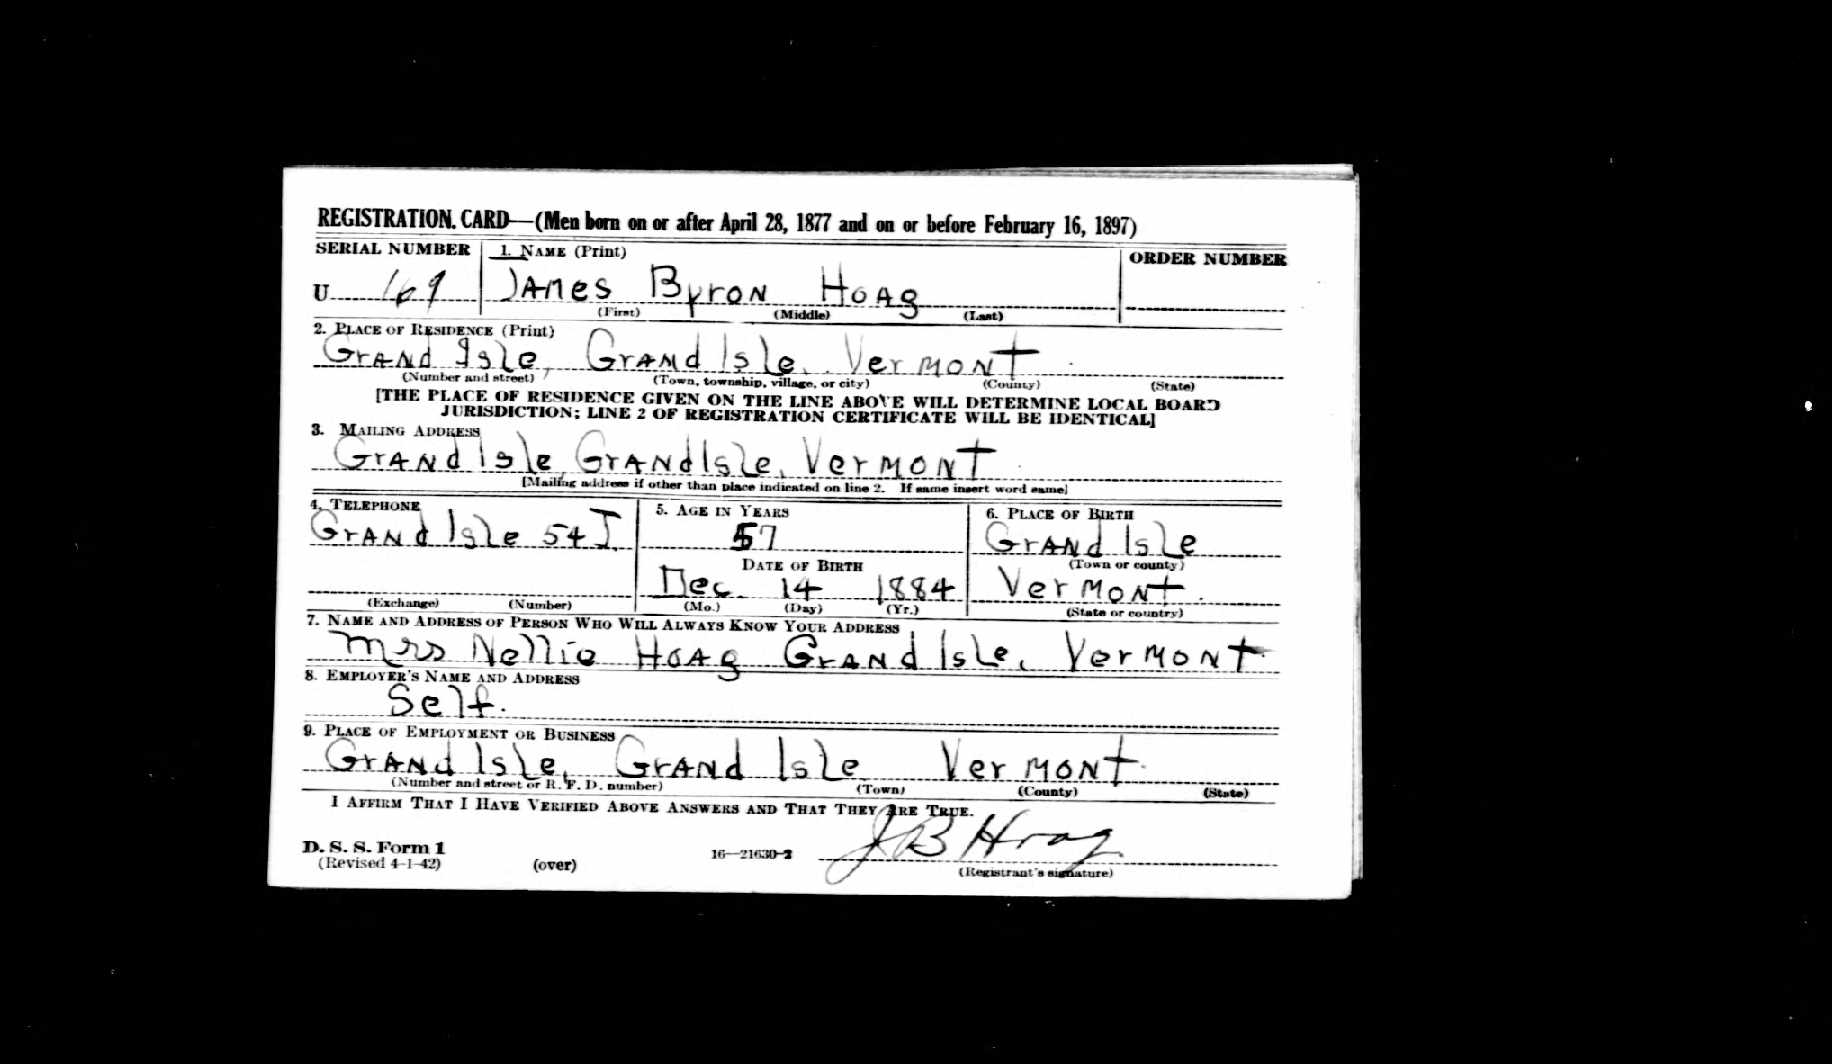 REGISTRATION CARD—(Men born on or after April 28, 1877 and on or before February 16, 1897)
SERIAL NUMBER 1. NAME (Print) ORDER NUMBER
U 169 James Byron Hoag
(First) (Middle) (Last)
2. PLACE OF RESIDENCE (Print)
Grand Isle, Grand Isle, Vermont
(Number and street) (Town, township, village, or city) (County) (State)
[THE PLACE OF RESIDENCE GIVEN ON THE LINE ABOVE WILL DETERMINE LOCAL BOARD
JURISDICTION; LINE 2 OF REGISTRATION CERTIFICATE WILL BE IDENTICAL]
3. MAILING ADDRESS
Grand Isle, Grand Isle, Vermont
[Mailing address if other than place indicated on line 2. If same insert word same]
4. TELEPHONE 5. AGE IN YEARS 6. PLACE OF BIRTH
Grand Isle 54 J 57 Grand Isle
DATE OF BIRTH (Town or county)
Dec 14 1884 Vermont
(Exchange) (Number) (Mo.) (Day) (Yr.) (State or country)
7. NAME AND ADDRESS OF PERSON WHO WILL ALWAYS KNOW YOUR ADDRESS
Mrs Nellie Hoag Grand Isle, Vermont
8. EMPLOYER'S NAME AND ADDRESS
Self.
9. PLACE OF EMPLOYMENT OR BUSINESS
Grand Isle, Grand Isle Vermont
(Number and street or R. F. D. number) (Town) (County) (State)
I AFFIRM THAT I HAVE VERIFIED ABOVE ANSWERS AND THAT THEY ARE TRUE.
J B Hoag
D. S. S. Form 1
(Revised 4-1-42) (over) 16—21630-2 (Registrant's signature)